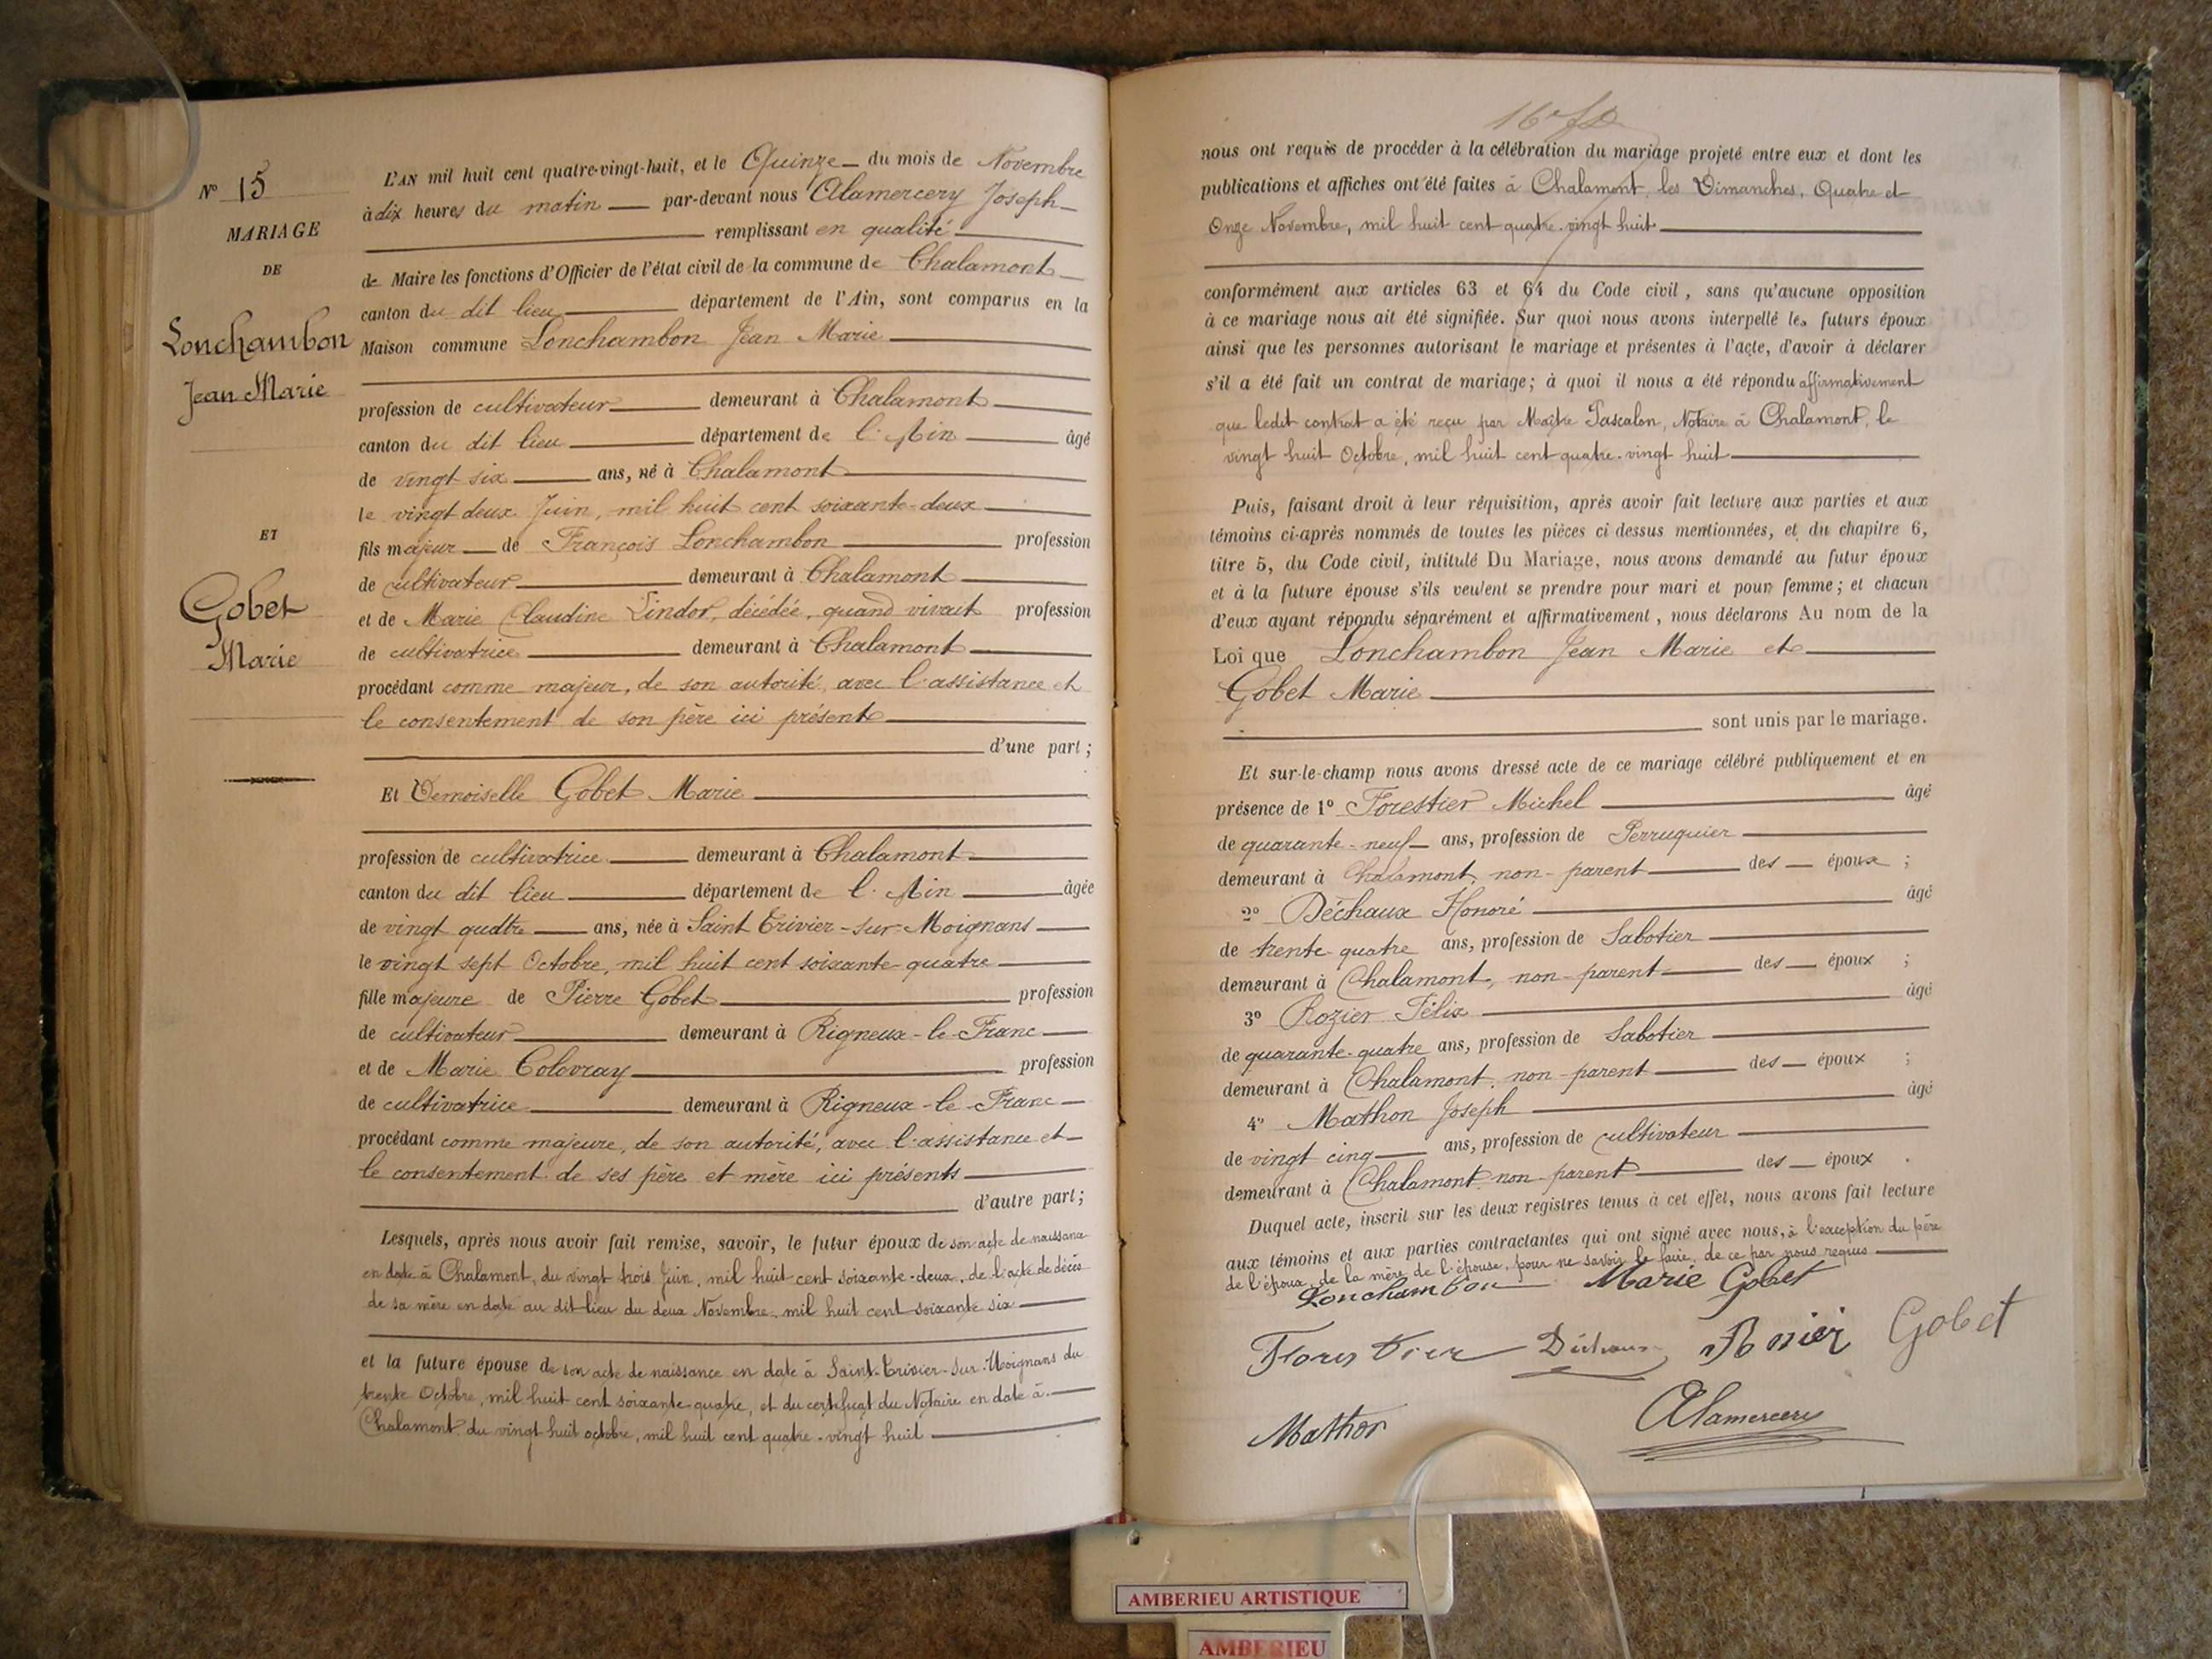 N° 15
MARIAGE
DE
Lonchambon
Jean Marie
ET
Gobet
Marie
L'AN mil huit cent quatre-vingt-huit, et le Quinze du mois de Novembre
à dix heures du matin par-devant nous Alamercery Joseph
remplissant en qualité
de Maire les fonctions d'Officier de l'état civil de la commune de Chalamont
canton du dit lieu département de l'Ain, sont comparus en la
Maison commune Lonchambon Jean Marie
profession de cultivateur demeurant à Chalamont
canton du dit lieu département de l'Ain âgé
de vingt six ans, né à Chalamont
le vingt deux Juin, mil huit cent soixante-deux
fils majeur de François Lonchambon profession
de cultivateur demeurant à Chalamont
et de Marie Claudine Lindor, décédée, quand vivait profession
de cultivatrice demeurant à Chalamont
procédant comme majeur, de son autorité, avec l'assistance et
le consentement de son père ici présent
d'une part ;
Et Demoiselle Gobet Marie
profession de cultivatrice demeurant à Chalamont
canton du dit lieu département de l'Ain âgée
de vingt quatre ans, née à Saint Trivier-sur-Moignans
le vingt sept Octobre, mil huit cent soixante-quatre
fille majeure de Pierre Gobet profession
de cultivateur demeurant à Rigneux-le-Franc
et de Marie Colovray profession
de cultivatrice demeurant à Rigneux-le-Franc
procédant comme majeure, de son autorité, avec l'assistance et
le consentement de ses père et mère ici présents
d'autre part ;
Lesquels, après nous avoir fait remise, savoir, le futur époux de son acte de naissance
en date à Chalamont, du vingt trois Juin, mil huit cent soixante-deux, de l'acte de décès
de sa mère en date au dit lieu du deux Novembre, mil huit cent soixante six
et la future épouse de son acte de naissance en date à Saint-Trivier-sur-Moignans du
trente Octobre, mil huit cent soixante quatre, et du certificat du Notaire en date à
Chalamont du vingt huit octobre, mil huit cent quatre-vingt huit
nous ont requis de procéder à la célébration du mariage projeté entre eux et dont les
publications et affiches ont été faites à Chalamont, les Dimanches, Quatre et
Onze Novembre, mil huit cent quatre-vingt huit
conformément aux articles 63 et 64 du Code civil, sans qu'aucune opposition
à ce mariage nous ait été signifiée. Sur quoi nous avons interpellé les futurs époux
ainsi que les personnes autorisant le mariage et présentes à l'acte, d'avoir à déclarer
s'il a été fait un contrat de mariage ; à quoi il nous a été répondu affirmativement
que ledit contrat a été reçu par Maître Pascalon, Notaire à Chalamont, le
vingt huit Octobre, mil huit cent quatre-vingt huit
Puis, faisant droit à leur réquisition, après avoir fait lecture aux parties et aux
témoins ci-après nommés de toutes les pièces ci dessus mentionnées, et du chapitre 6,
titre 5, du Code civil, intitulé Du Mariage, nous avons demandé au futur époux
et à la future épouse s'ils veulent se prendre pour mari et pour femme ; et chacun
d'eux ayant répondu séparément et affirmativement, nous déclarons Au nom de la
Loi que Lonchambon Jean Marie et
Gobet Marie
sont unis par le mariage.
Et sur-le-champ nous avons dressé acte de ce mariage célébré publiquement et en
présence de 1° Forestier Michel âgé
de quarante-neuf ans, profession de Perruquier
demeurant à Chalamont, non-parent des époux ;
2° Déchaux Honoré âgé
de trente quatre ans, profession de Sabotier
demeurant à Chalamont, non-parent des époux ;
3° Rozier Félix âgé
de quarante-quatre ans, profession de Sabotier
demeurant à Chalamont, non-parent des époux ;
4° Mathon Joseph âgé
de vingt cinq ans, profession de cultivateur
demeurant à Chalamont non-parent des époux .
Duquel acte, inscrit sur les deux registres tenus à cet effet, nous avons fait lecture
aux témoins et aux parties contractantes qui ont signé avec nous, à l'exception du père
de l'époux, de la mère de l'épouse, pour ne savoir le faire, de ce par nous requis
Lonchambon Marie Gobet
Forestier Déchaux Rozier Gobet
Mathon Alamercery
AMBERIEU ARTISTIQUE
AMBERIEU